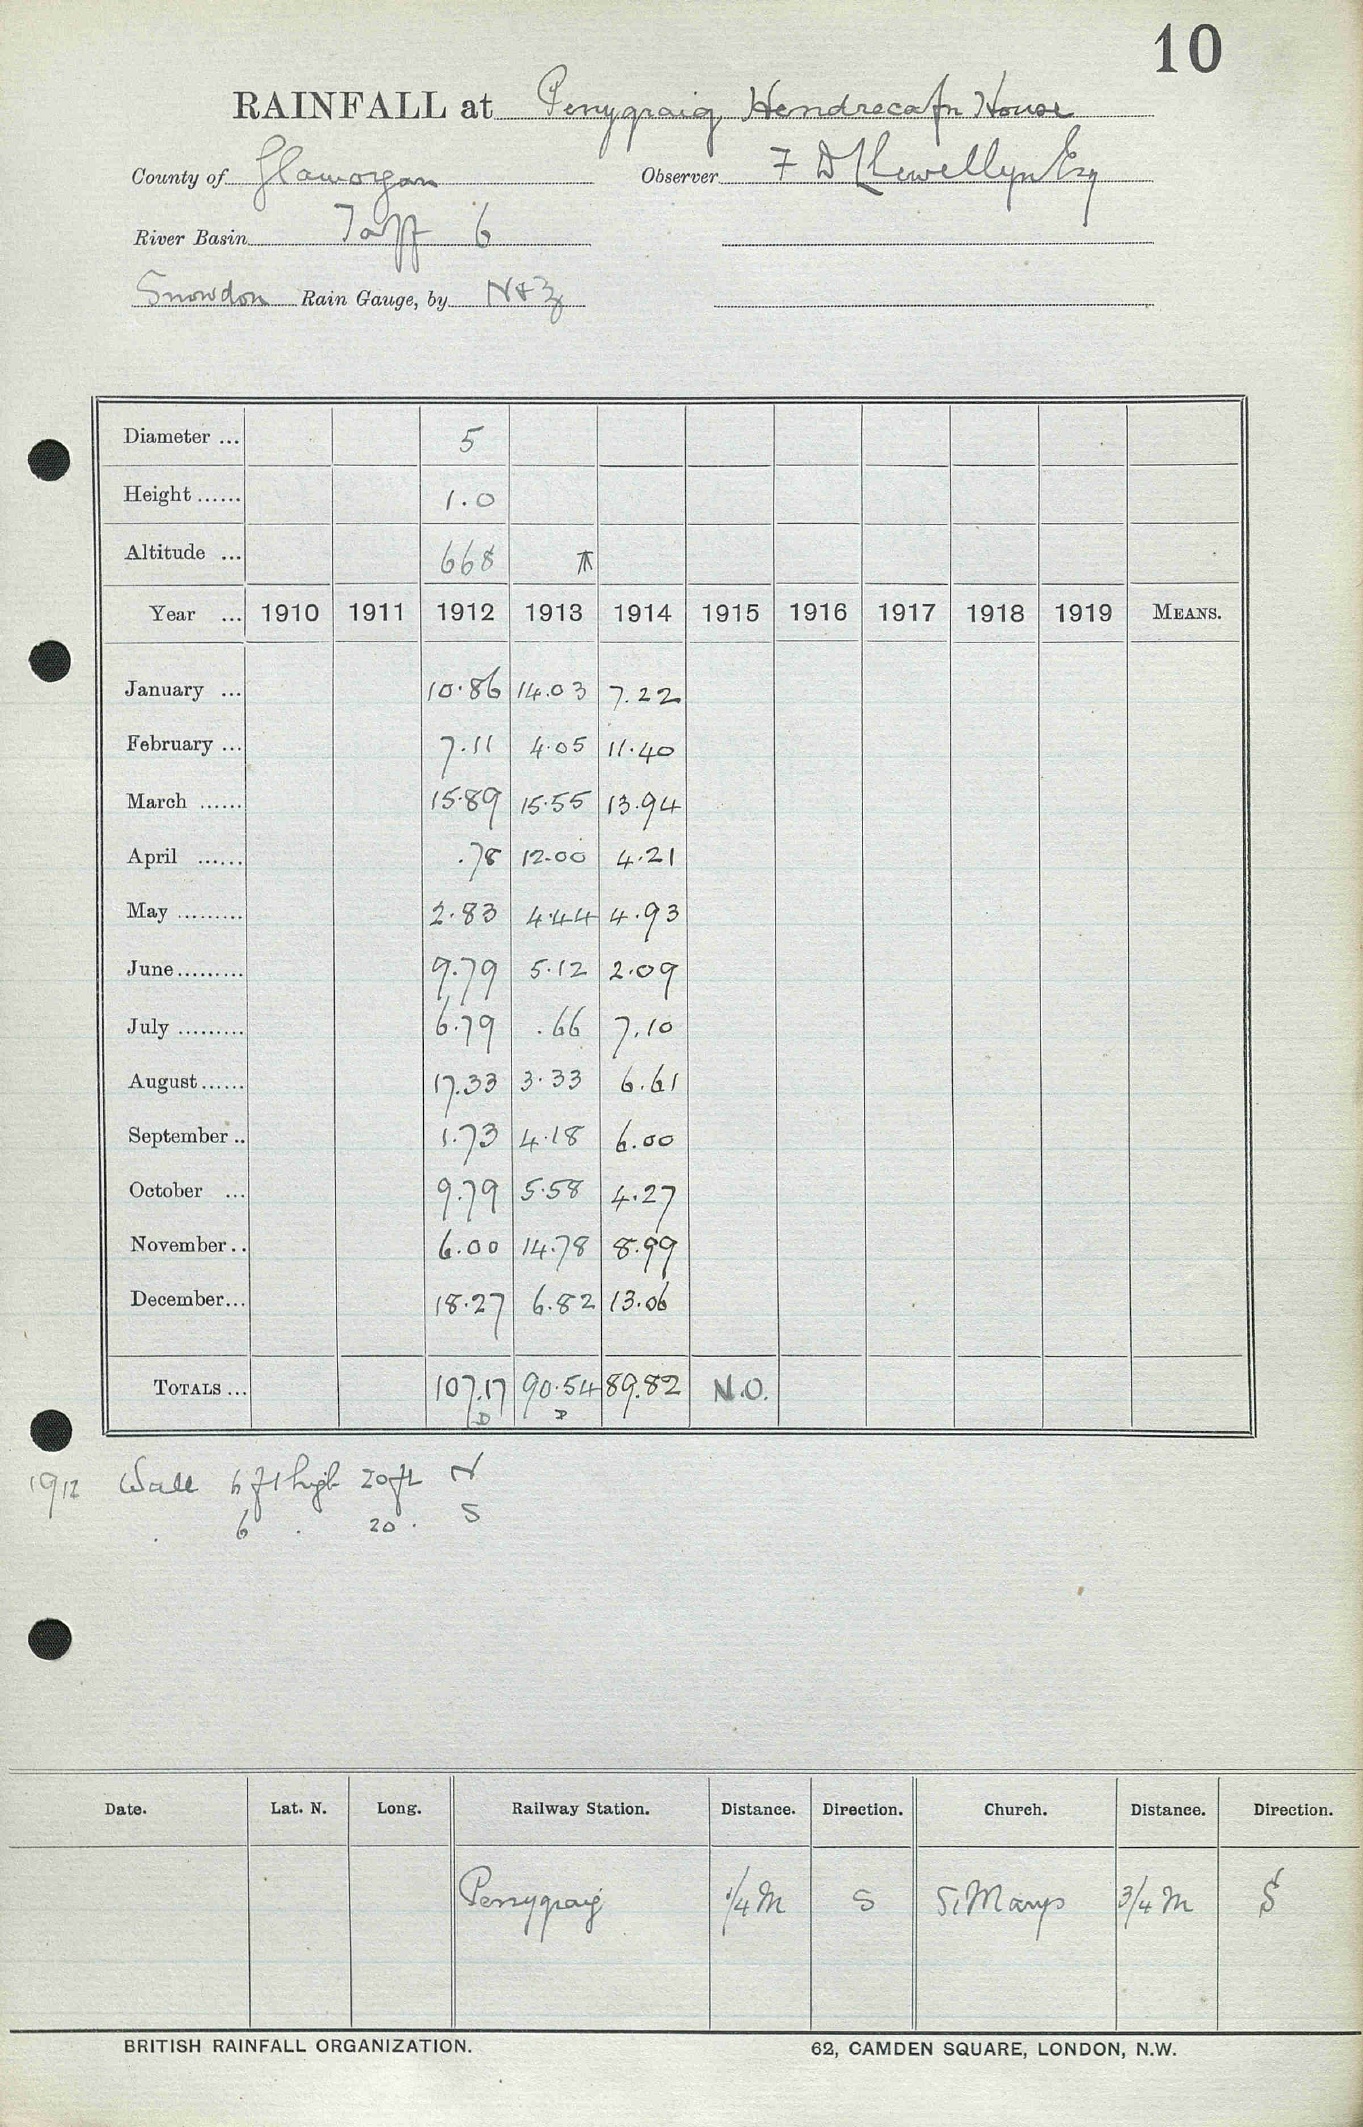 10
RAINFALL at Penygraig Hendrecafn House
County of Glamorgan Observer F D Llewellyn Esq
River Basin Taff 6
Snowdon Rain Gauge, by N & Z
Diameter ... 5
Height ...... 1.0
Altitude ... 668
Year ... 1910 1911 1912 1913 1914 1915 1916 1917 1918 1919 MEANS.
January ... 10.86 14.03 7.22
February ... 7.11 4.05 11.40
March ...... 15.89 15.55 13.94
April ...... .78 12.00 4.21
May ......... 2.83 4.44 4.93
June......... 9.79 5.12 2.09
July ......... 6.79 .66 7.10
August...... 17.33 3.33 6.61
September .. 1.73 4.18 6.00
October ... 9.79 5.58 4.27
November.. 6.00 14.78 8.99
December... 18.27 6.82 13.06
TOTALS ... 107.17 90.54 89.82 N.O.
D D
1912 Wall 6 ft high 20 ft N
. 6 . 20 . S
Date. Lat. N. Long. Railway Station. Distance. Direction. Church. Distance. Direction.
Penygraig 1/4 M S St Marys 3/4 M S
BRITISH RAINFALL ORGANIZATION. 62, CAMDEN SQUARE, LONDON, N.W.